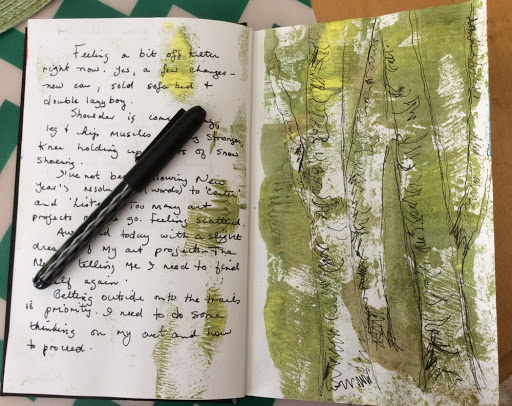 Feeling a bit off kilter
right now. Yes, a few changes -
new car, sold sofa bed &
double lazyboy.
Shoulder is
leg & hip muscles stronger,
Knee holding of snow
shoeing.
I've not been New
Year's words) to 'Center'
and 'List Too many art
projects go. Feeling scattered.
today with a slight
of my art projects. The
telling me I need to find
again.
Getting outside onto the trails
is priority. I need to do some
thinking on my art and how
to proceed.